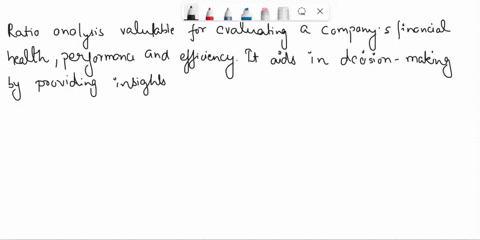 Ratio analysis valuable for evaluating a company's financial
health, performance and efficiency. It aids in decision-making
by providing insights